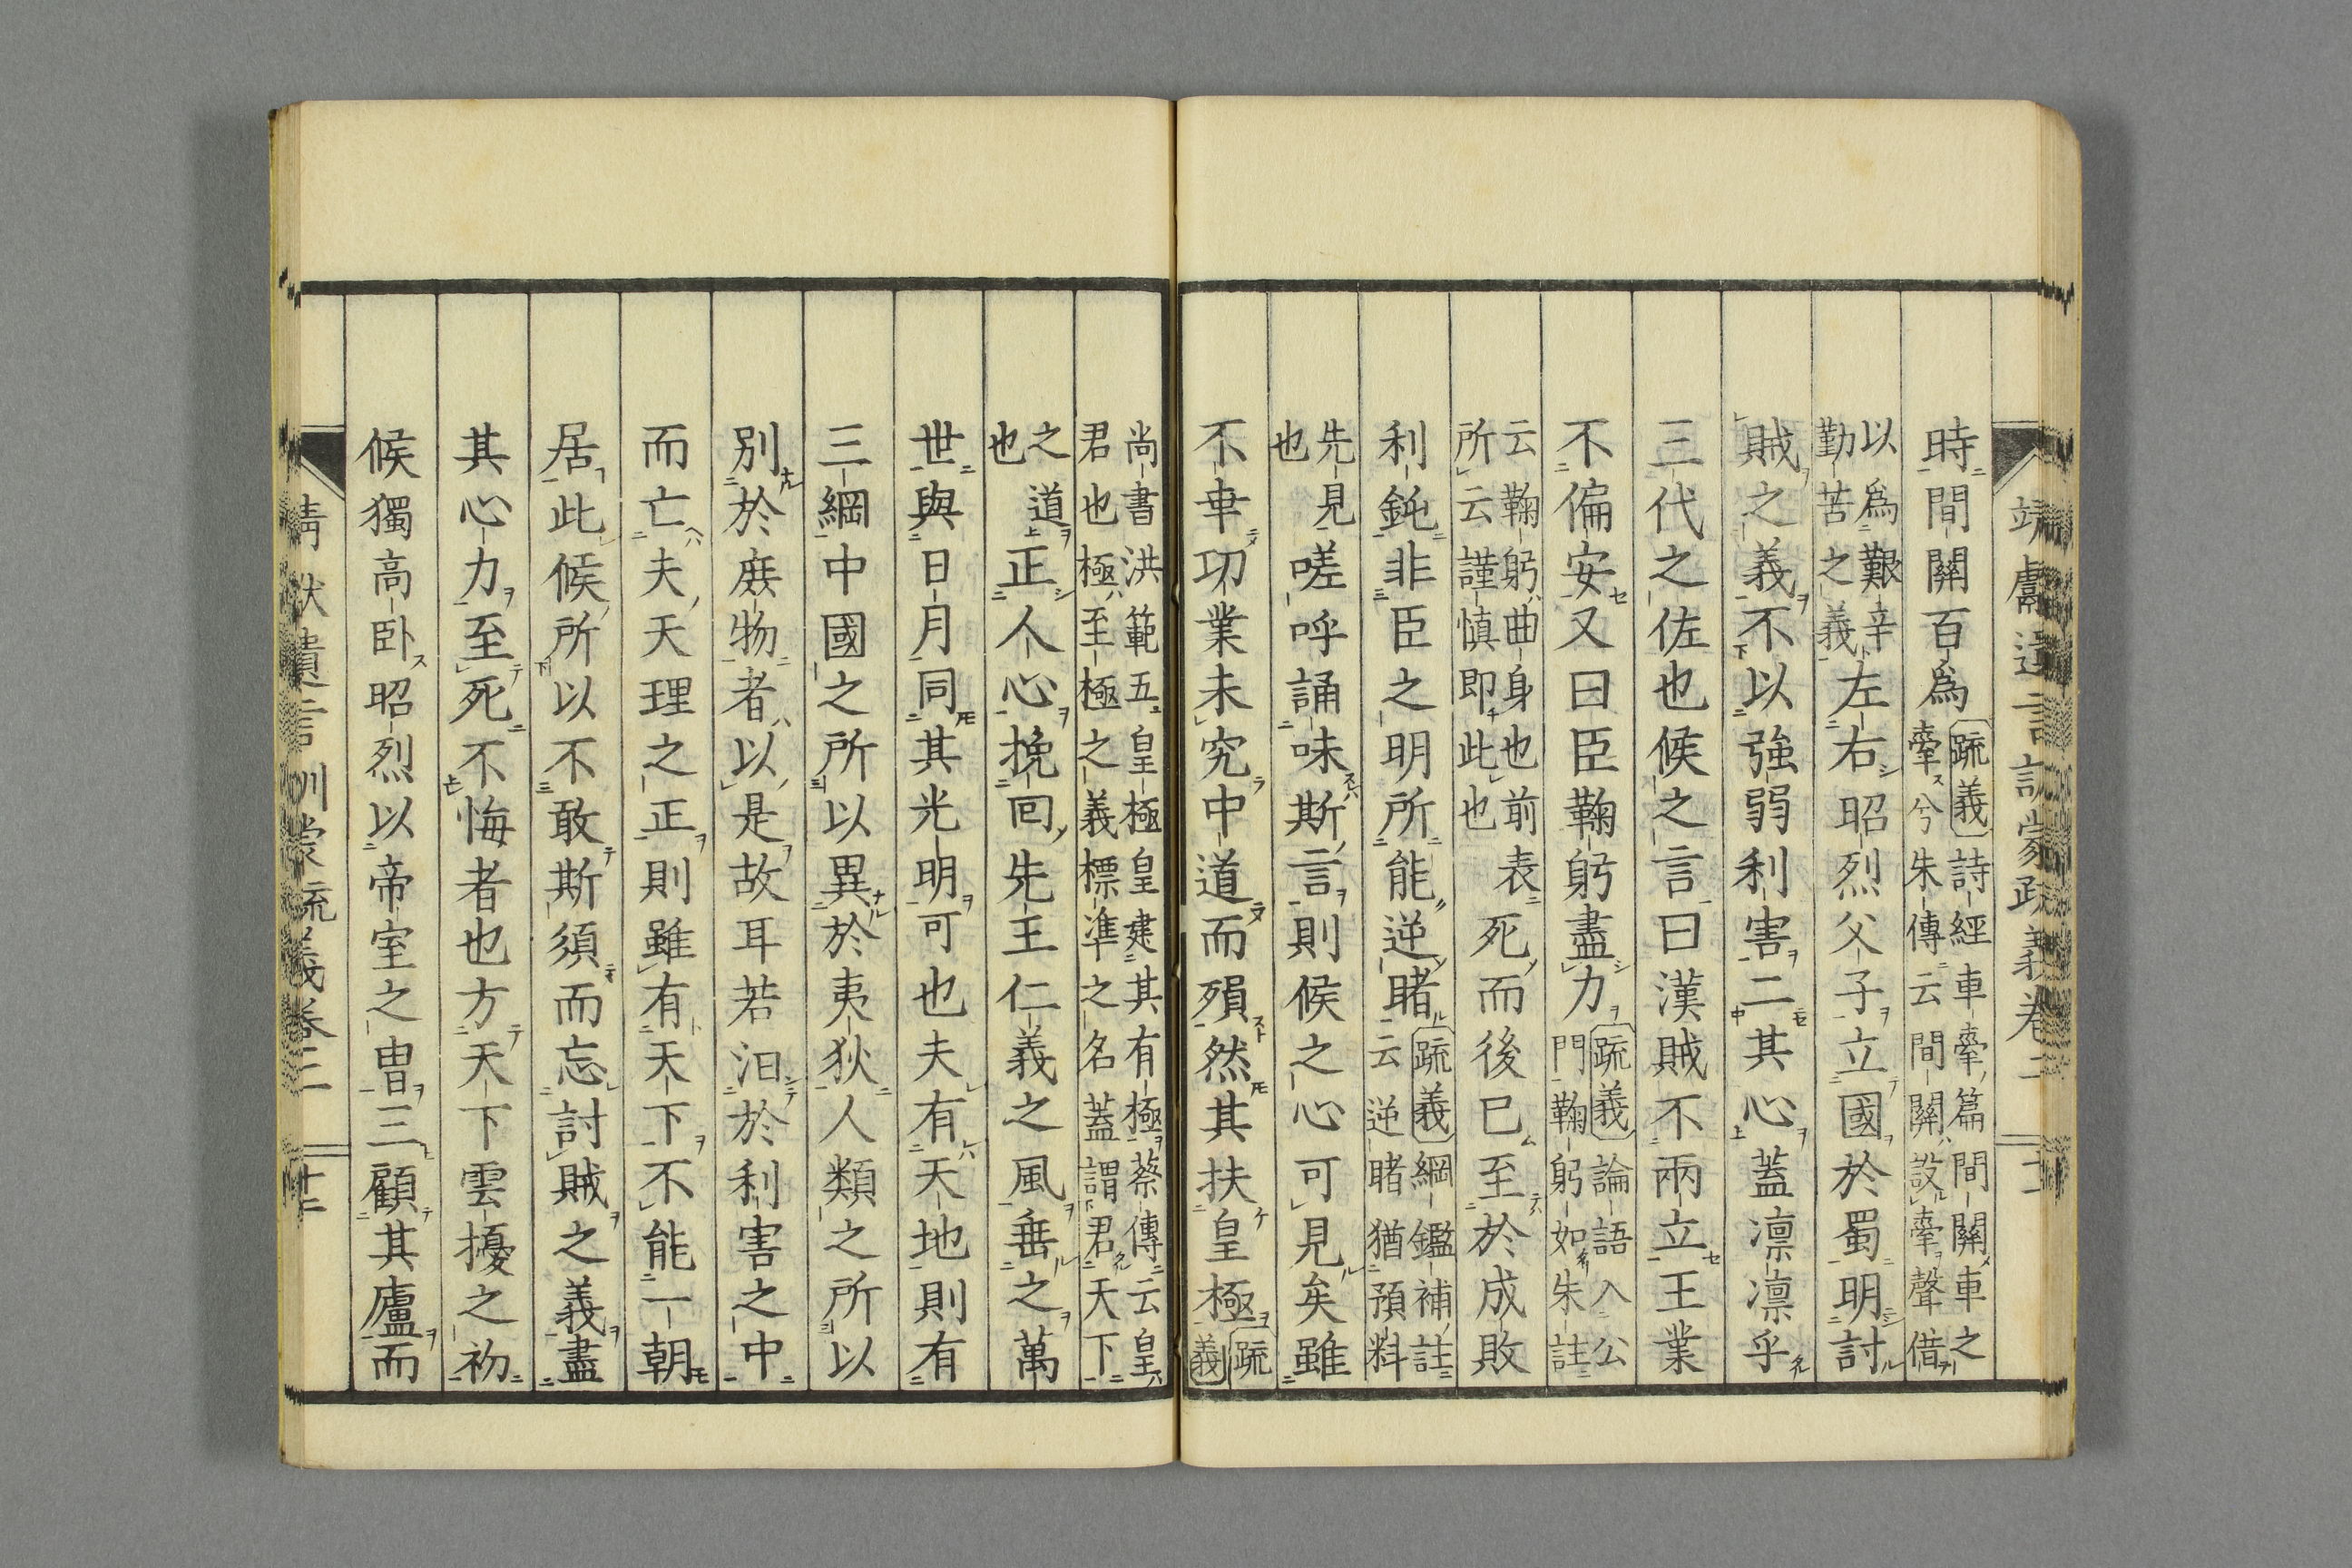 靖獻遺言訓蒙疏義卷二
時間關百爲疏義詩經車舝篇間關車之舝兮朱傳云間關設舝聲借
以爲艱辛勤苦之義左右昭烈父子立國於蜀明討
賊之義不以強弱利害二其心蓋凛凛乎
三代之佐也候之言曰漢賊不兩立王業
不偏安又曰臣鞠躬盡力疏義論語入公門鞠躬如朱註
云鞠躬曲身也前表所云謹慎即此也死而後已至於成敗
利鈍非臣之明所能逆睹疏義綱鑑補註云逆睹猶預料
先見也嗟呼誦味斯言則候之心可見矣雖
不幸功業未究中道而殞然其扶皇極疏義
尚書洪範五皇極皇建其有極蔡傳云皇君也極至極之義標準之名蓋謂君天下
之道也正人心挽回先王仁義之風垂之萬
世與日月同其光明可也夫有天地則有
三綱中國之所以異於夷狄人類之所以
別於庶物者以是故耳若汨於利害之中
而亡夫天理之正則雖有天下不能一朝
居此候所以不敢斯須而忘討賊之義盡
其心力至死不悔者也方天下雲擾之初
候獨高卧昭烈以帝室之冑三顧其廬而
靖獻遺言訓蒙疏義卷二 十二